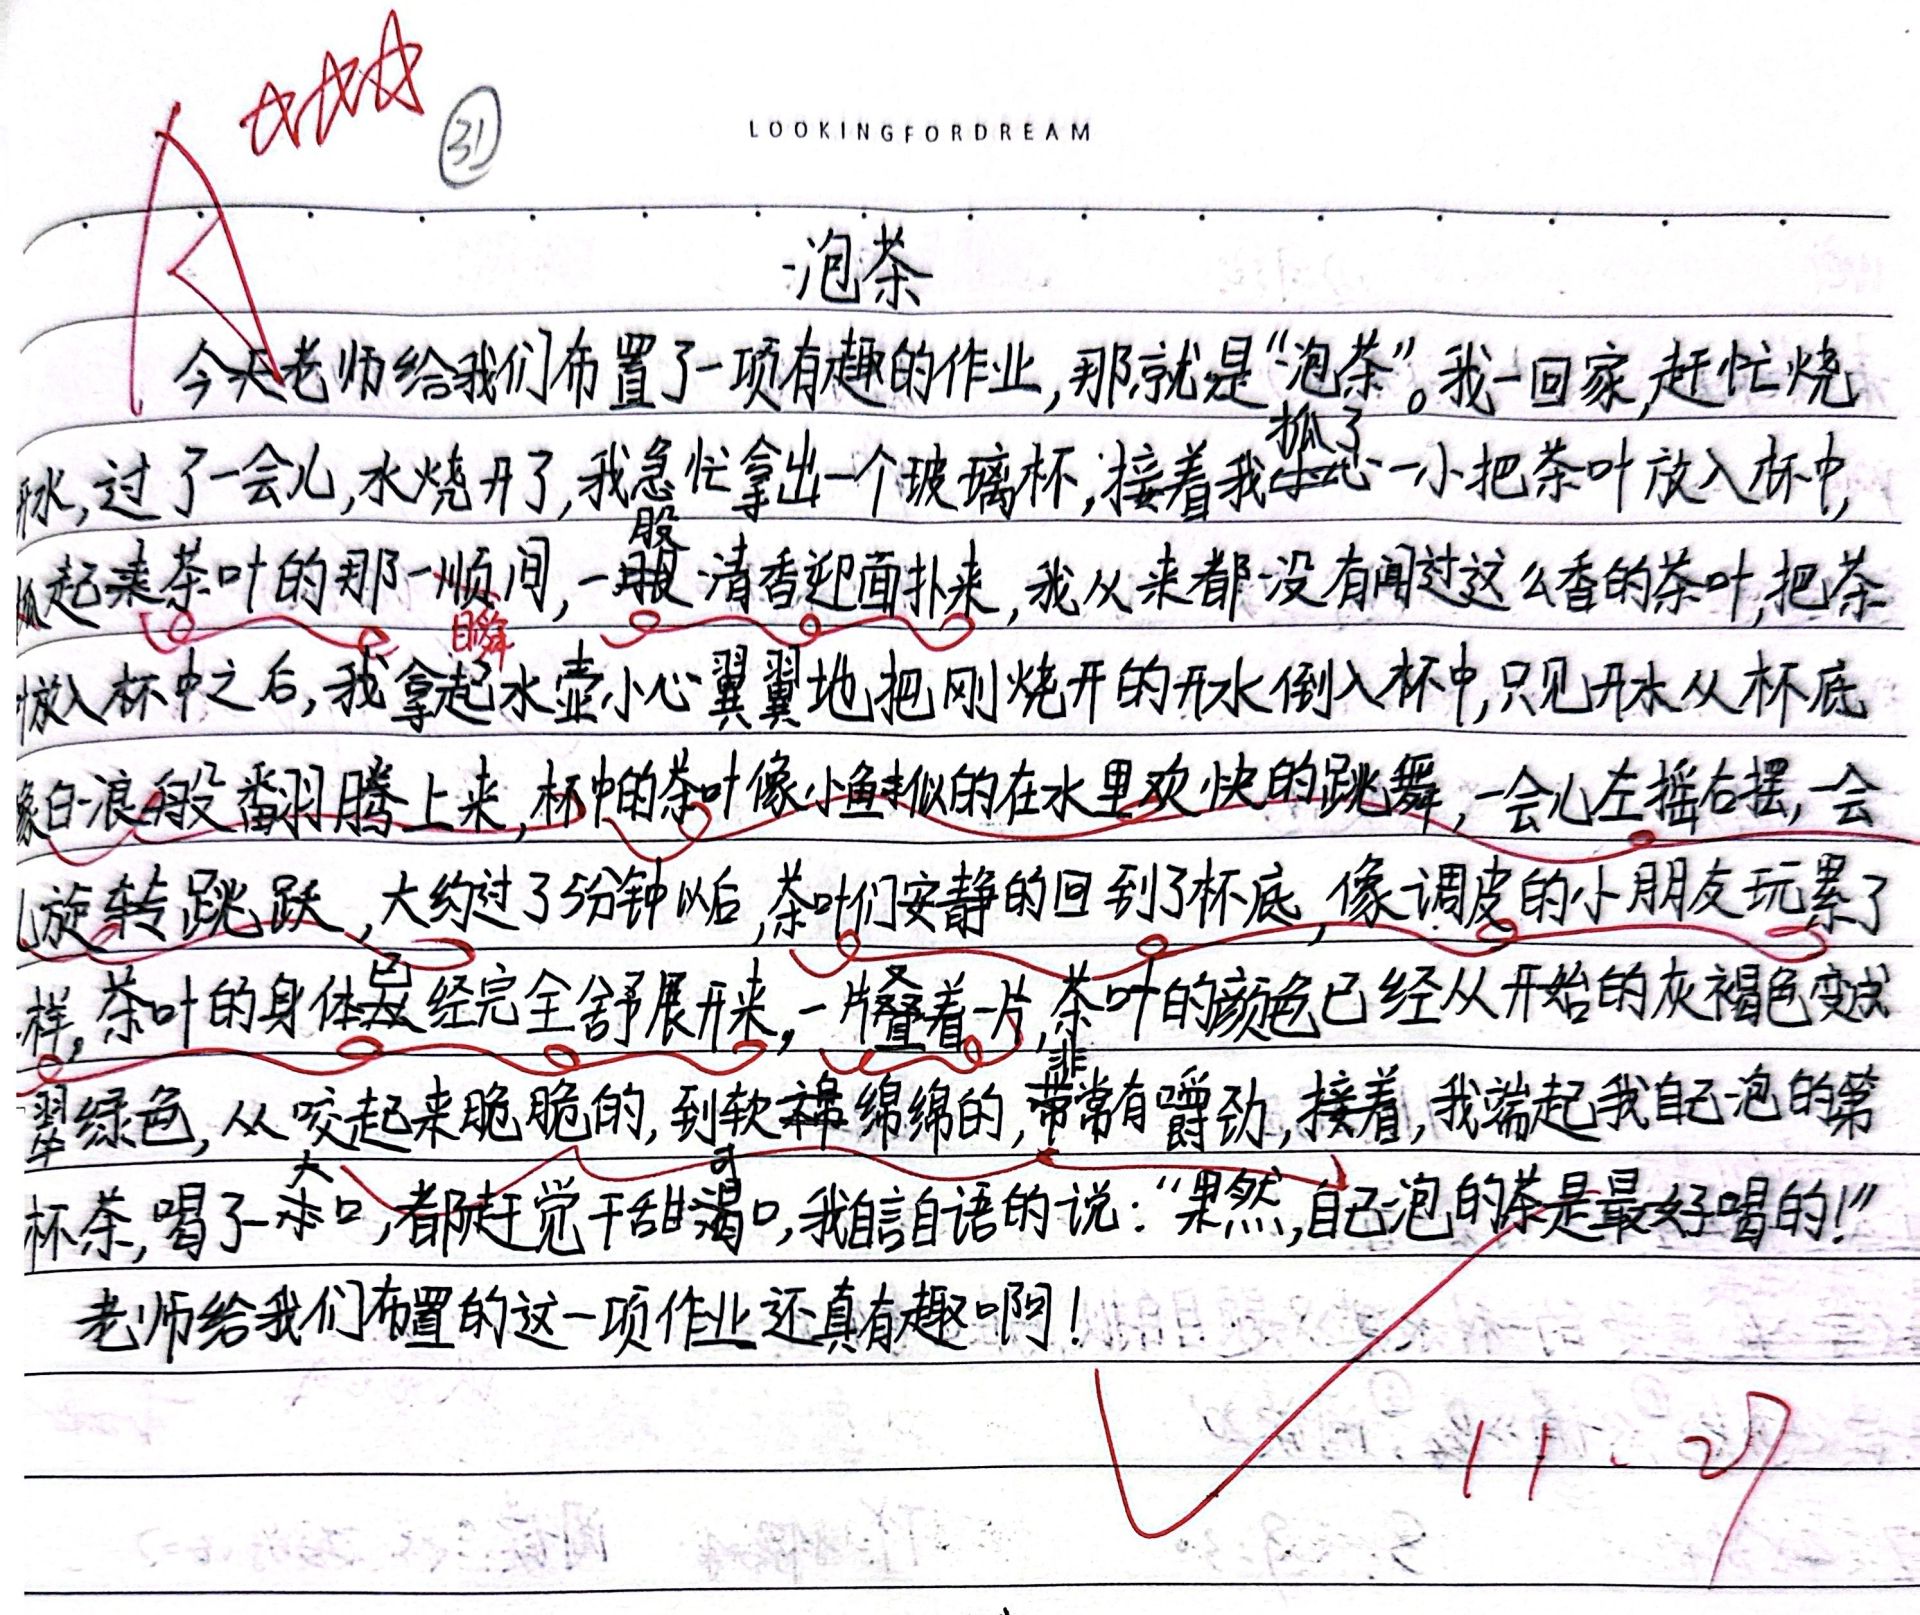 31
LOOKINGFORDREAM
泡茶
今天老师给我们布置了一项有趣的作业,那就是“泡茶”。我一回家,赶忙烧
开水,过了一会儿,水烧开了,我急忙拿出一个玻璃杯,接着我抓了一小把茶叶放入杯中,
抓起来茶叶的那一顺间,一股清香迎面扑来,我从来都没有闻过这么香的茶叶,把茶
瞬
放入杯中之后,我拿起水壶小心翼翼地把刚烧开的开水倒入杯中,只见开水从杯底
像白浪般翻腾上来,杯中的茶叶像小鱼似的在水里欢快的跳舞,一会儿左摇右摆,一会
儿旋转跳跃,大约过了5分钟以后,茶叶们安静的回到了杯底,像调皮的小朋友玩累了
样,茶叶的身体已经完全舒展开来,一片叠着一片,茶叶的颜色已经从开始的灰褐色变成
翠绿色,从咬起来脆脆的,到软绵绵的,非常有嚼劲,接着,我端起我自己泡的第
杯茶,喝了一大口,都赶觉干甜可口,我自言自语的说:“果然,自己泡的茶是最好喝的!”
老师给我们布置的这一项作业还真有趣啊!
11.27